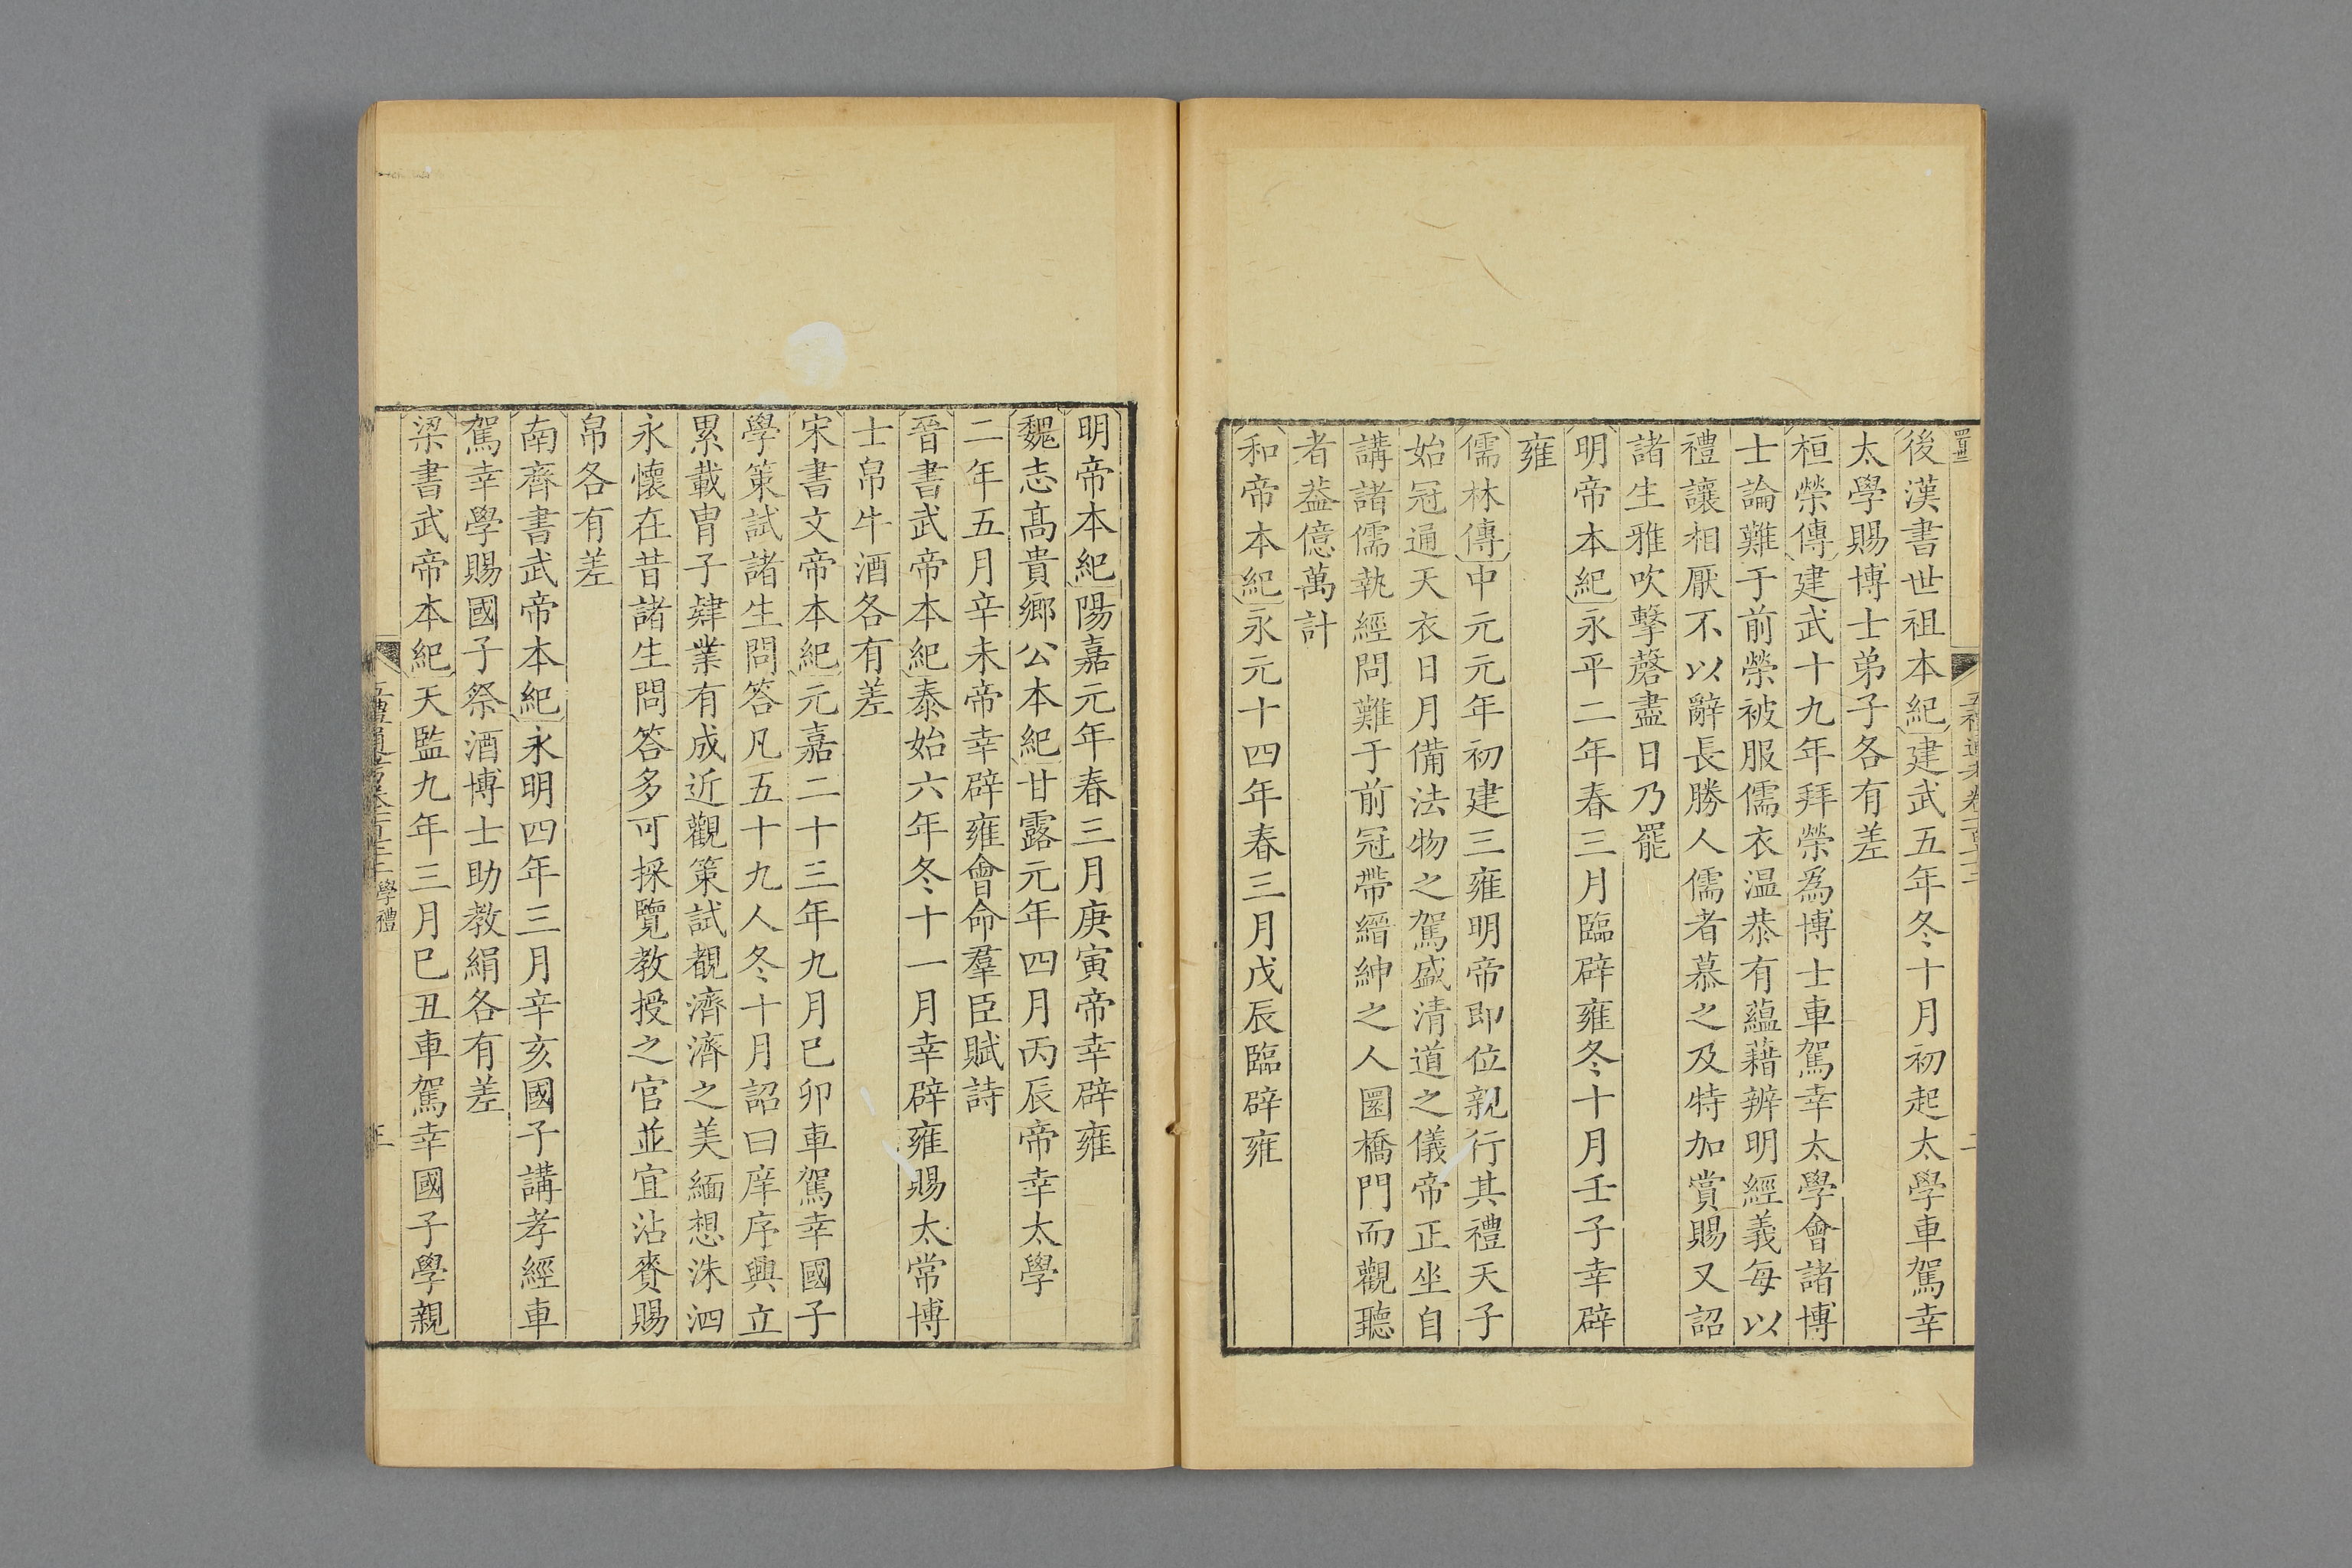 後漢書世祖本紀建武五年冬十月初起太學車駕幸
太學賜博士弟子各有差
桓榮傳建武十九年拜榮為博士車駕幸太學會諸博
士論難于前榮被服儒衣温恭有蘊藉辨明經義每以
禮讓相厭不以辭長勝人儒者慕之及特加賞賜又詔
諸生雅吹擊磬盡日乃罷
明帝本紀永平二年春三月臨辟雍冬十月壬子幸辟
雍
儒林傳中元元年初建三雍明帝即位親行其禮天子
始冠通天衣日月備法物之駕盛清道之儀帝正坐自
講諸儒執經問難于前冠帶縉紳之人圜橋門而觀聽
者葢億萬計
和帝本紀永元十四年春三月戊辰臨辟雍
明帝本紀陽嘉元年春三月庚寅帝幸辟雍
魏志高貴鄉公本紀甘露元年四月丙辰帝幸太學
二年五月辛未帝幸辟雍會命羣臣賦詩
晉書武帝本紀泰始六年冬十一月幸辟雍賜太常博
士帛牛酒各有差
宋書文帝本紀元嘉二十三年九月巳卯車駕幸國子
學策試諸生問答凡五十九人冬十月詔曰庠序興立
累載胄子肄業有成近觀策試覩濟濟之美緬想洙泗
永懷在昔諸生問答多可採覽教授之官並宜沾賚賜
帛各有差
南齊書武帝本紀永明四年三月辛亥國子講孝經車
駕幸學賜國子祭酒博士助教絹各有差
梁書武帝本紀天監九年三月巳丑車駕幸國子學親
學禮